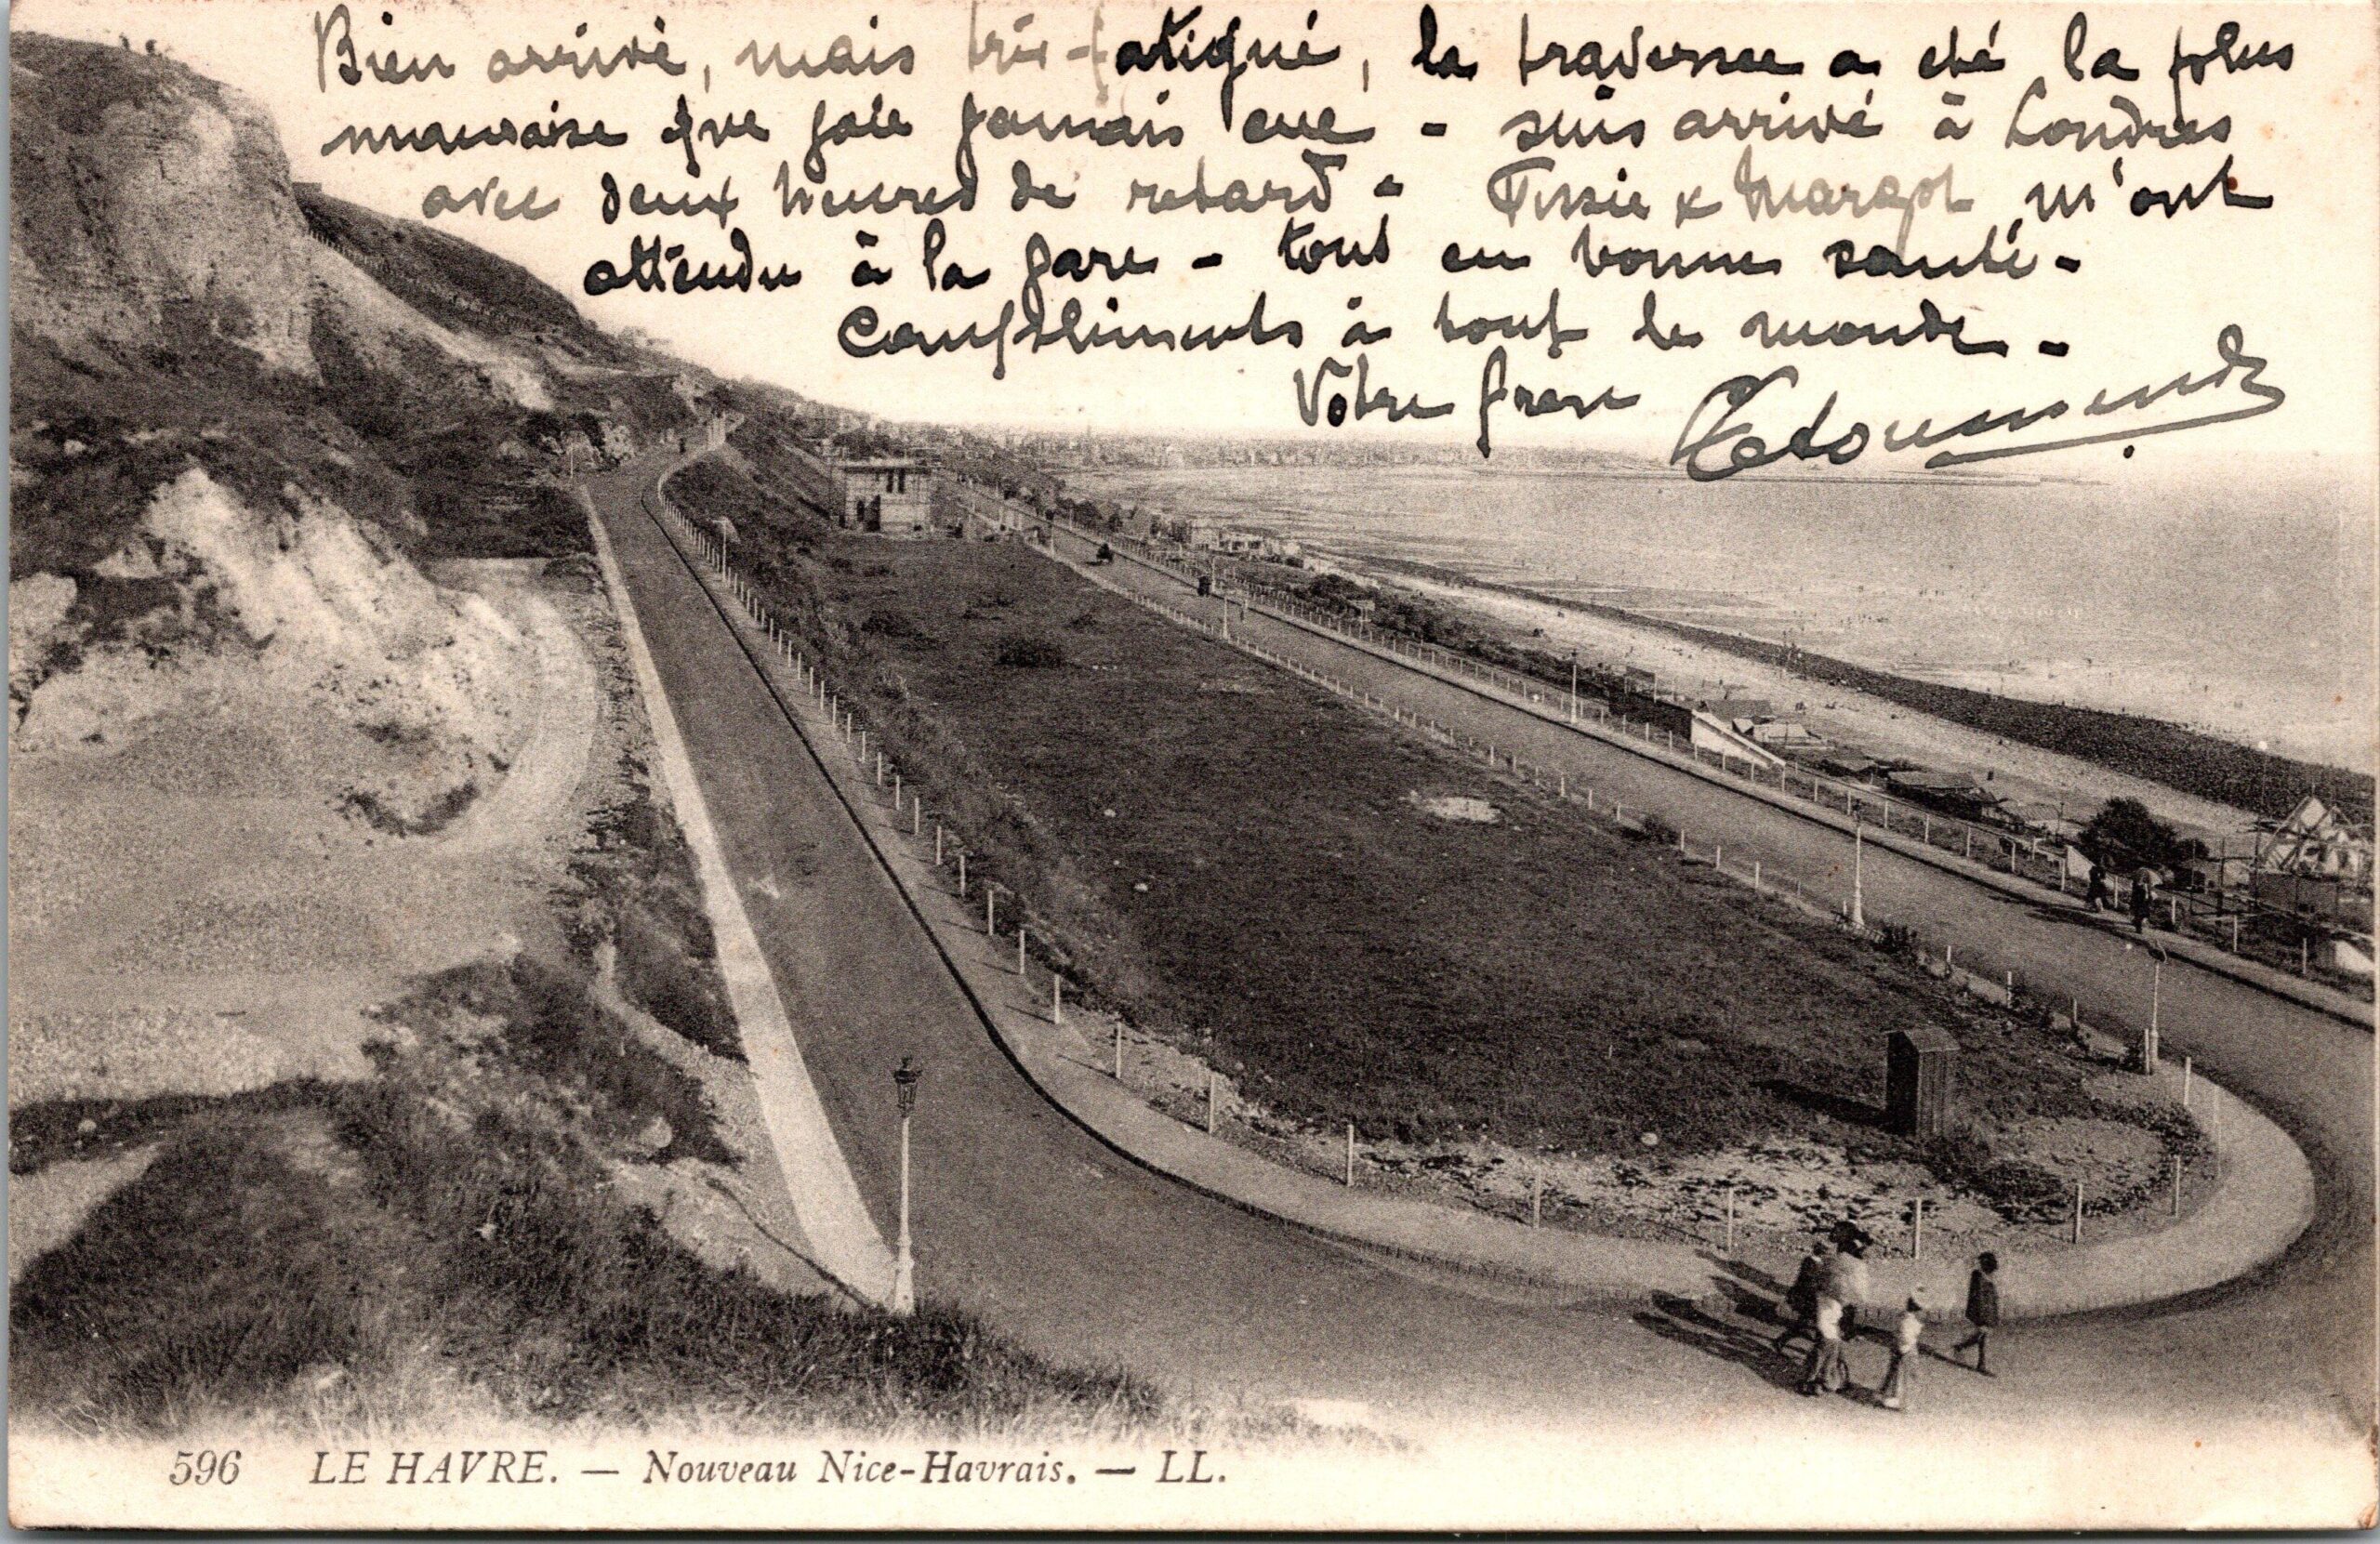 Bien arrivé, mais très-fatigué, la traversée a été la plus
mauvaise que j'aie jamais eue - suis arrivé à Londres
avec deux heures de retard - & Margot m'ont
attendu à la gare - tous en bonne santé -
Compliments à tout le monde -
Votre frère
596 LE HAVRE. — Nouveau Nice-Havrais. — LL.